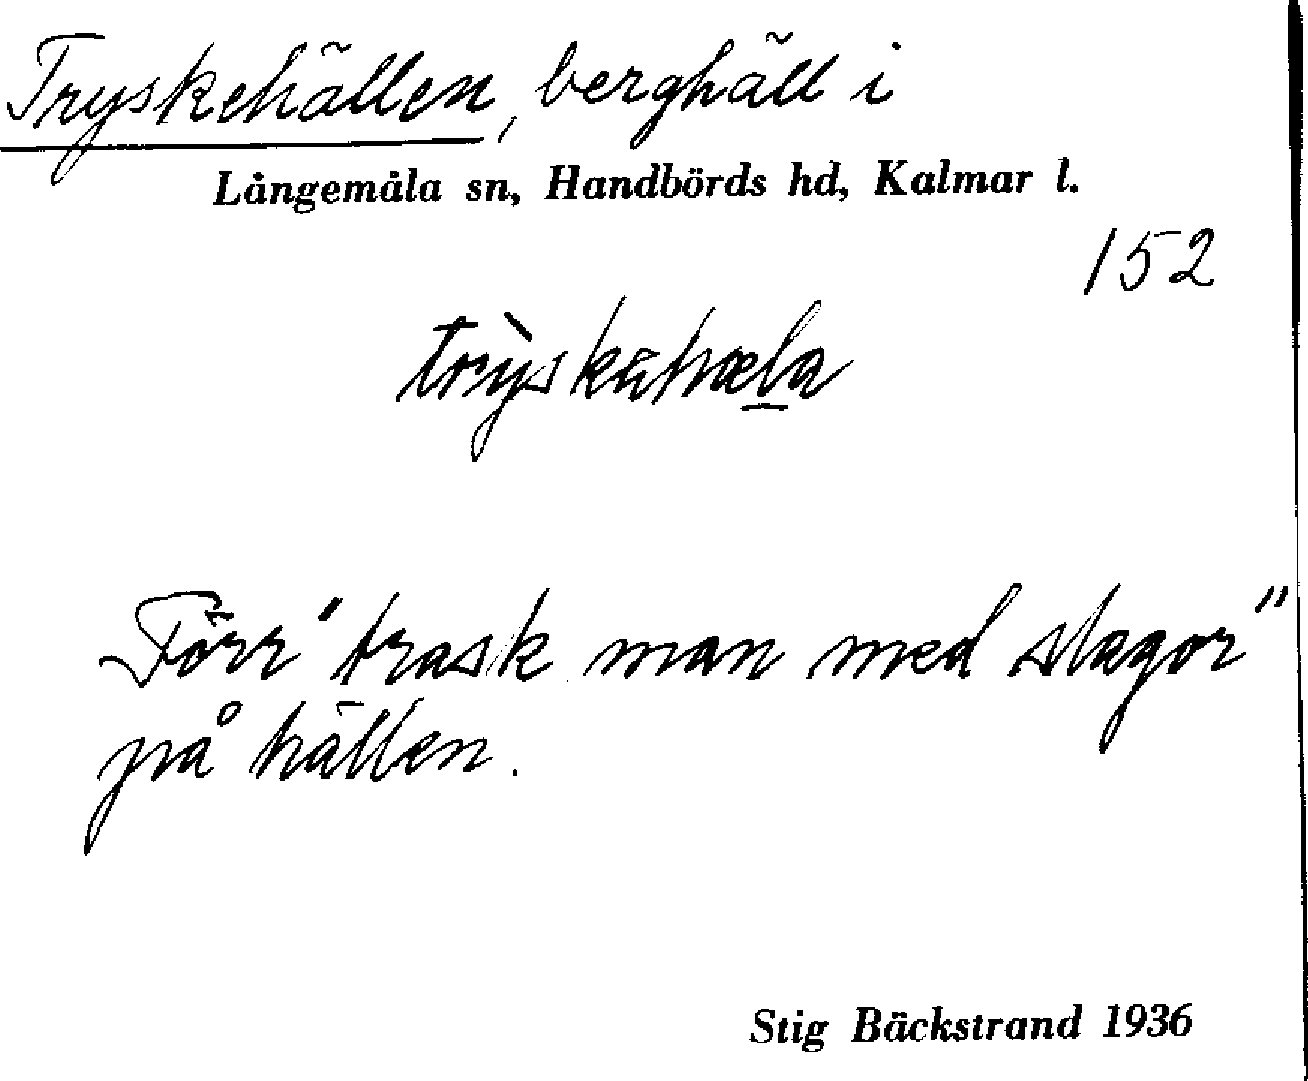 Tryskehällen, berghäll i
Långemåla sn, Handbörds hd, Kalmar l.
152
trỳskähæla
Förr "trask man med slagor"
på hällen.
Stig Bäckstrand 1936